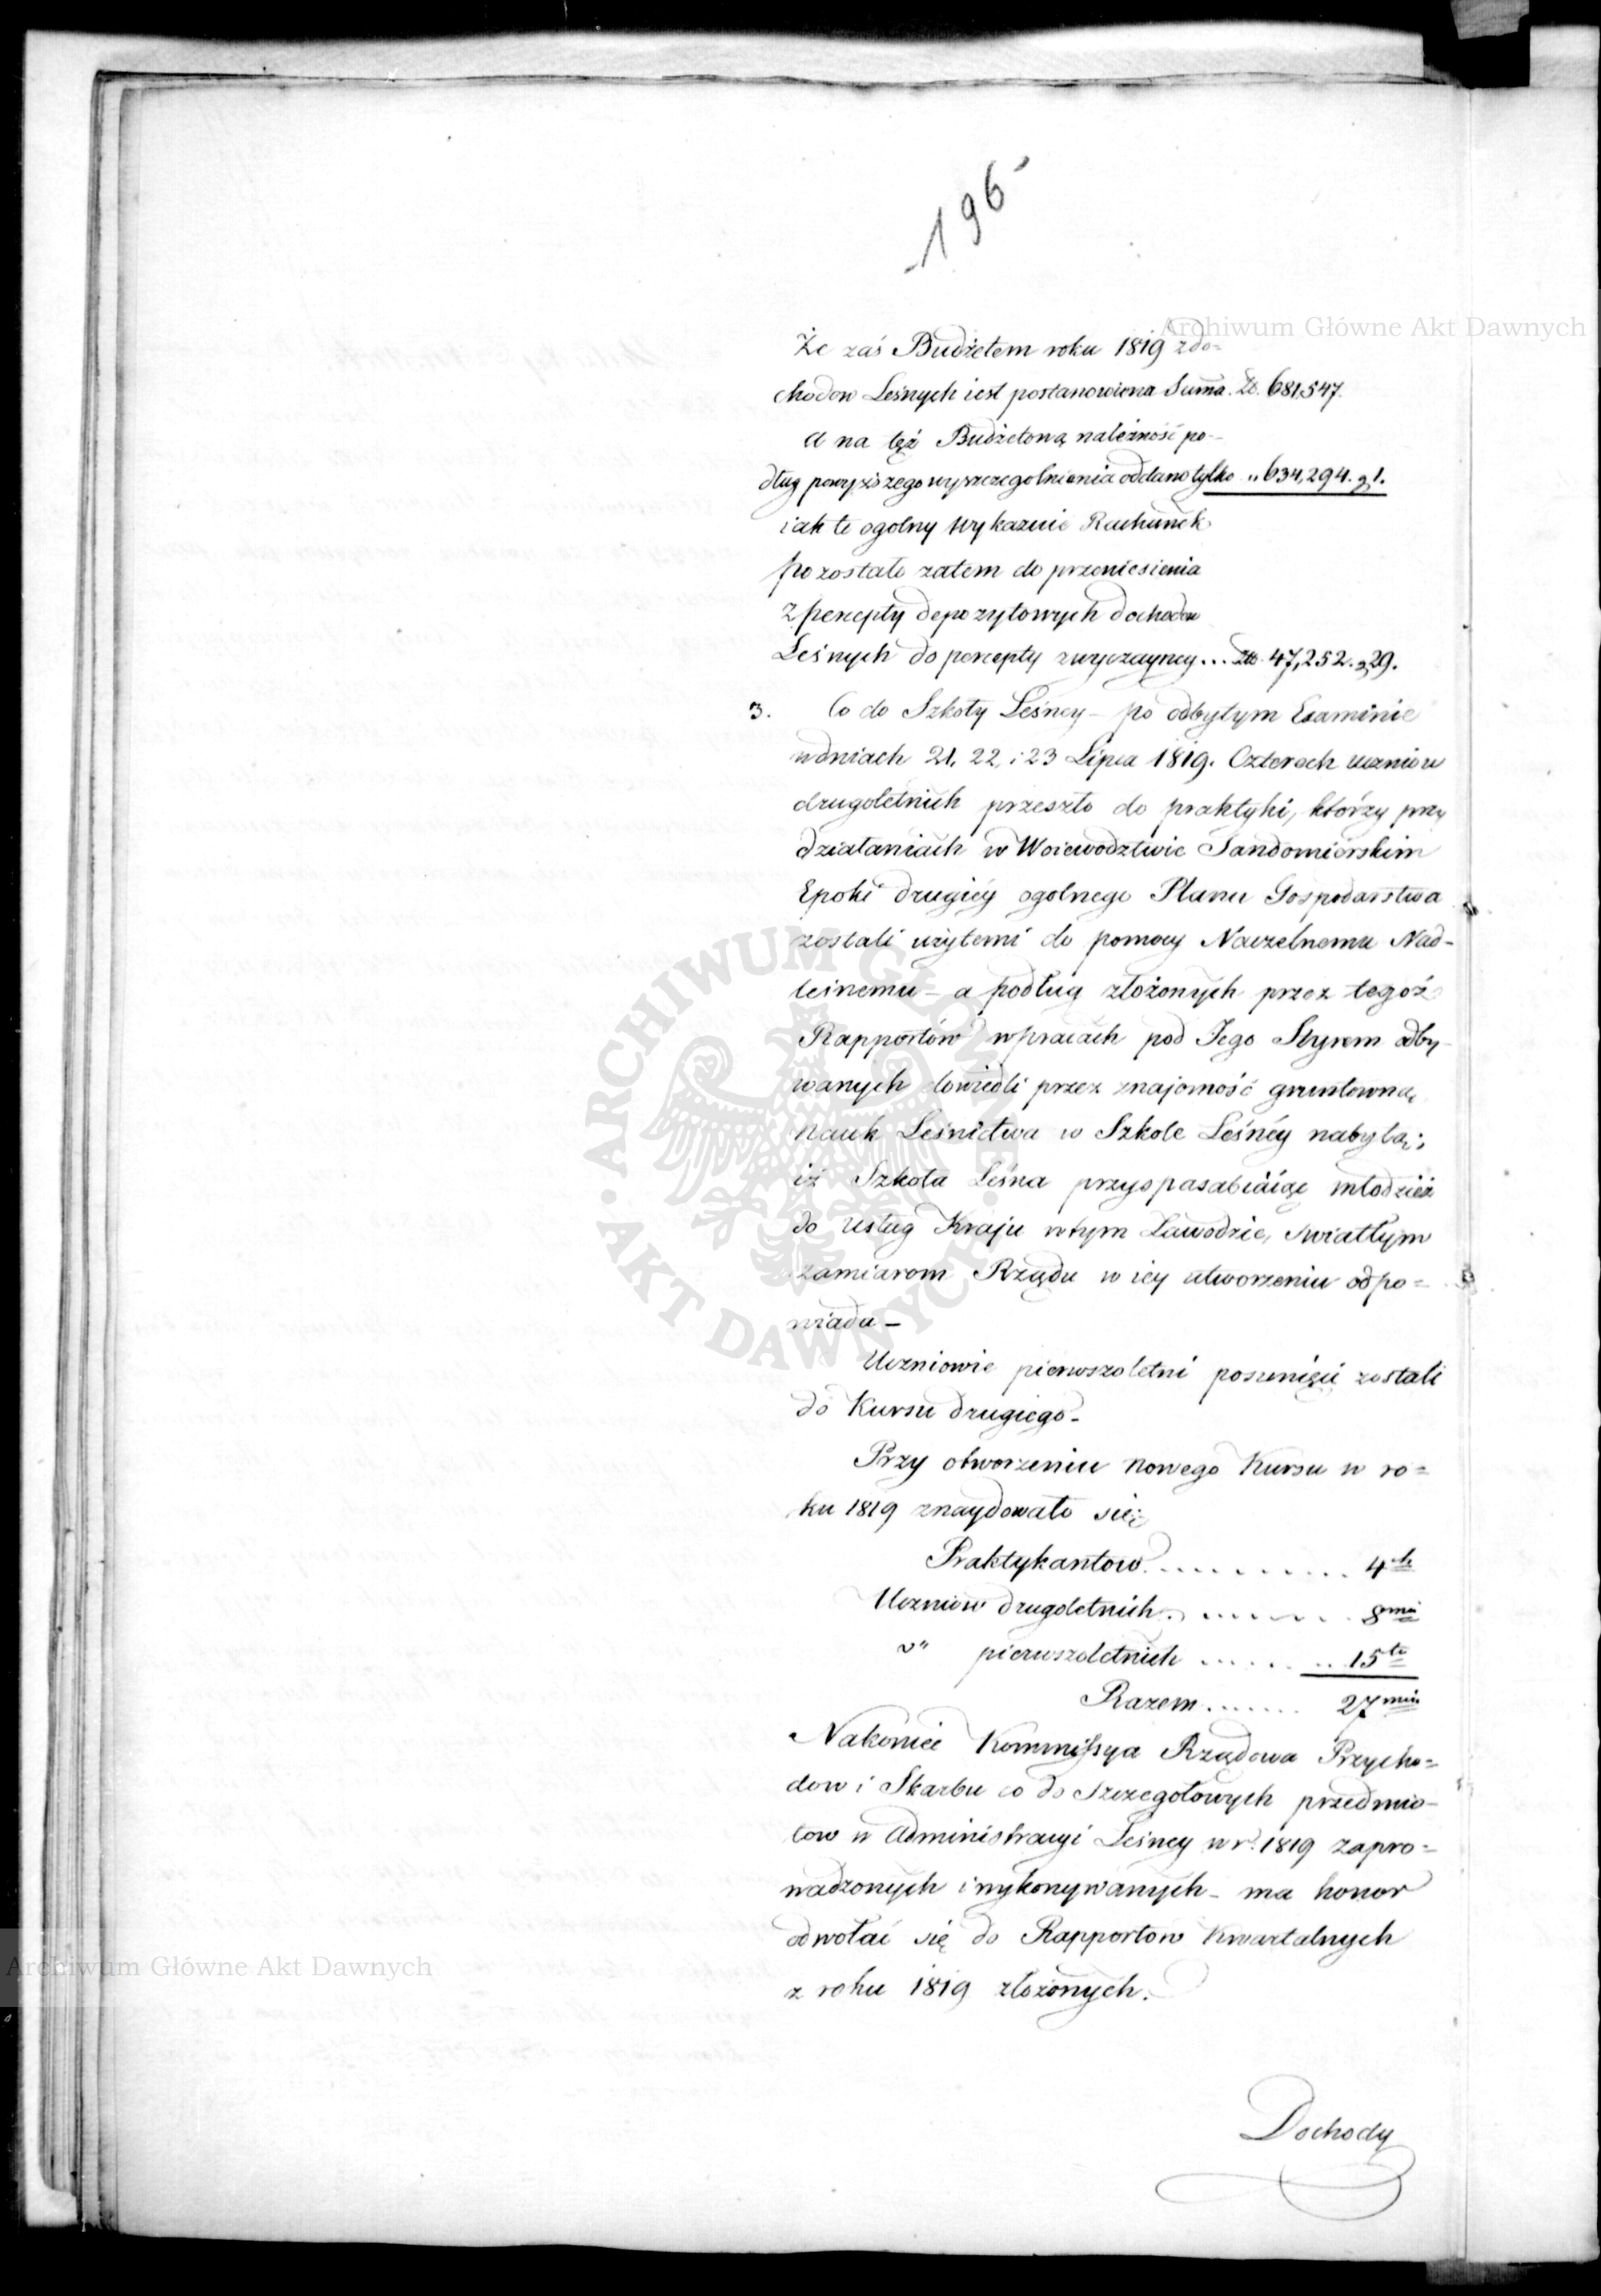 196
Archiwum Główne Akt Dawnych
Że zaś Budżetem roku 1819 z do=
chodow Leśnych iest postanowiona Summa. Zł. 681,547.
a na tęż Budżetową należność po-
dług powyższego wyszczegolnienia oddano tylko „ 634,294. g 1.
iak to ogolny Wykazuie Rachunek
pozostało zatem do przeniesienia
z percepty depozytowych dochodow
Leśnych do percepty zwyczayney... Zł. 47,252. g 29.
3. Co do Szkoły Leśney – po odbytym Examinie
w dniach 21, 22, i 23 Lipca 1819. Czterech uczniow
drugoletnich przeszło do praktyki, którzy przy
działaniach w Woiewodztwie Sandomierskim
Epoki drugiéy ogolnego Planu Gospodarstwa
zostali użytemi do pomocy Naczelnemu Nad-
leśnemu – a podług złożonych przez tegoż
Rapportów w pracach pod Jego Styrem odby-
wanych dowiedli przez znajomość gruntowną
nauk Leśnictwa w Szkole Leśnéy nabytą;
iż Szkoła Leśna przysposabiaiąc młodzież
do usług Kraju w tym Zawodzie, światłym
zamiarom Rządu w iey utworzeniu odpo=
wiada –
Uczniowie pierwszoletni posunięci zostali
do Kursu drugiego –
Przy otworzeniu nowego Kursu w ro=
ku 1819 znaydowało się;
Praktykantow .......... 4ch
Uczniow drugoletnich ......... 8miu
„ pierwszoletnich ......... 15tu
Razem ....... 27miu
Nakoniec Kommissya Rządowa Przycho=
dow i Skarbu co do szczegołowych przedmio-
tow w Administracyi Leśney w r. 1819 zapro=
wadzonych i wykonywanych – ma honor
odwołać się do Rapportow Kwartalnych
z roku 1819 złożonych.
Archiwum Główne Akt Dawnych
Dochody
ARCHIWUM GŁÓWNE AKT DAWNYCH